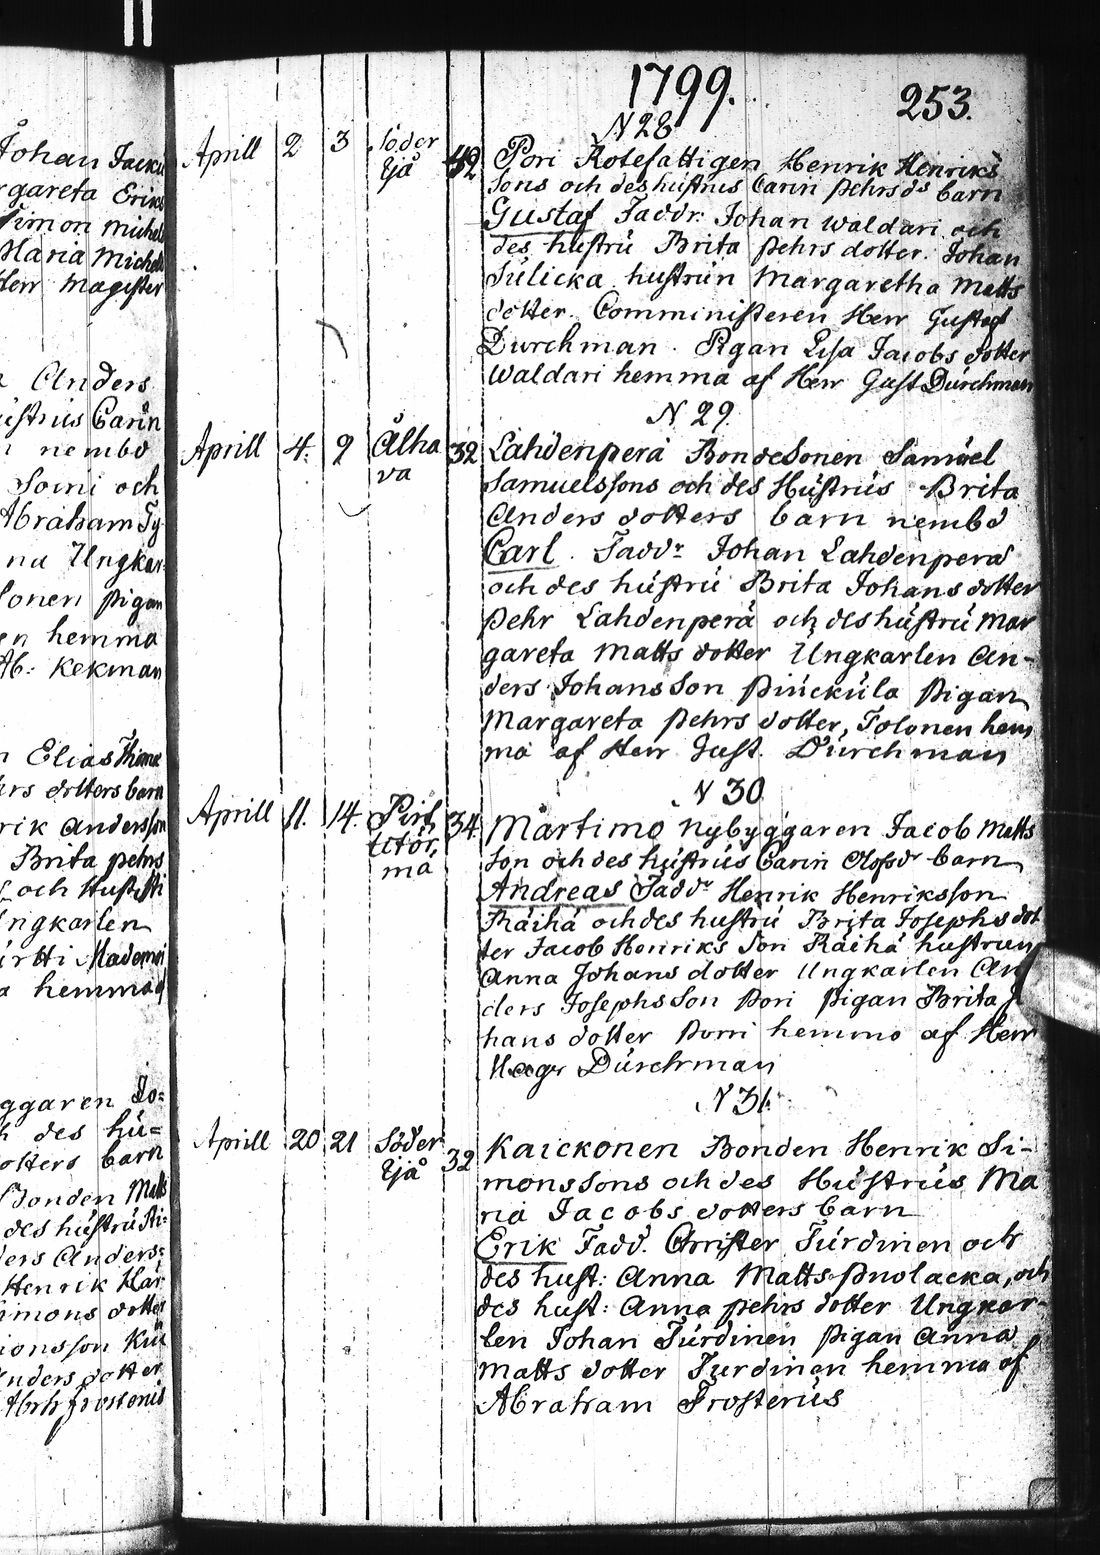 1799.
253.
Johan Jacks
rgareta Eriks
Simon Michels
Maria Michels
Herr Magister
Anders
ustrus Carin
nembd
Soini och
Abraham Ty
na Ungkar
Sonen Pigan
en hemma
Ab: Kekman
Elias Thoma
hrs dotters barn
rik Andersson
Brita Pehrs
och Hust
Ungkarlen
irtti Mademoi
a hemma af
ggaren Jo=
h des hu=
otters barn
Bonden Matts
des hustru
ders Anders=
Henrik Kar
imons dotter
ionsson
Anders dotter
Abrh Frosterus
N 28
Aprill 2 3 Söder Ejå 42
Pori Rotefattigen Henrik Henriks
Sons och des hustrus Carin Pehrsds barn
Gustaf Faddr: Johan Waldari och
des hustru Brita Pehrs dotter. Johan
Sulicka hustrun Margaretha Matts
dotter. Comministeren Herr Gustaf
Durchman. Pigan Lisa Jacobs dotter
Waldari hemma af Herr Gust Durchman
N 29.
Aprill 4. 9 Ålha va 32
Lahdenperä BondeSonen Samuel
Samuelssons och des Hustrus Brita
Anders dotters barn nembd
Carl. Faddr Johan Lahdenperä
och des hustru Brita Johans dotter
Pehr Lahdenperä och des hustru Mar
gareta Matts dotter Ungkarlen An-
ders Johans Son Pinckula Pigan
Margareta Pehrs dotter, Tolonen hem
ma af Herr Gust. Durchman
N 30
Aprill 11. 14. Pirt, titör, ma 34
Martimo Nybyggaren Jacob Matts
Son och des hustrus Carin Olofsdr barn
Andreas Faddr Henrik Henriksson
Räihä och des hustru Brita Josephs dot
ter Jacob Henriks Son Räihä hustrun
Anna Johans dotter Ungkarlen An
ders Josephs Son Pori Pigan Brita J
hans dotter Porri hemma af Herr
Magr Durchman
N 31.
Aprill 20 21 Söder Ejå 32
Kaickonen Bonden Henrik Si-
monssons och des Hustrus Ma
ria Jacobs dotters barn
Erik Fadd. Christer Turdinen och
des hust: Anna Matts Puolacka, och
des hust: Anna Pehrs dotter Ungkar-
len Johan Turdinen Pigan Anna
Matts dotter Turdinen hemma af
Abraham Frosterus